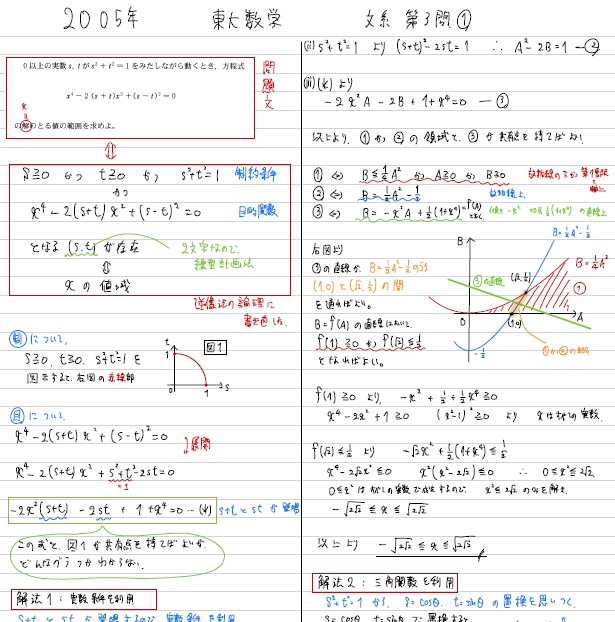 2005年 東大数学 文系 第3問①
0以上の実数 s, t が s²+t²=1 をみたしながら動くとき，方程式
x⁴−2(s+t)x²+(s−t)²=0
の解のとる値の範囲を求めよ。
x
問題文
⇕
s≧0 かつ t≧0 かつ s²+t²=1 制約条件
かつ
x⁴−2(s+t)x²+(s−t)²=0 目的関数
となる (s,t) が存在
2文字なので、
線型計画法
⇕
xの値域
逆像法の論理に
書き直した。
制 について、
s≧0, t≧0, s²+t²=1 を
図示すると、右図の赤線部
図1
t
1
0
1
s
目 について、
x⁴−2(s+t)x²+(s−t)²=0
展開
x⁴−2(s+t)x²+s²+t²−2st=0
=1
−2x²(s+t)−2st+1+x⁴=0…(*) s+tとstが登場
この式と、図1が共有点を持てばよいが、
どんなグラフかわからない。
解法1：実数条件を利用
s+tとstが登場するので、実数条件を利用
(ii) s²+t²=1 より (s+t)²−2st=1 ∴ A²−2B=1 —②
(iii) (*)より
−2x²A−2B+1+x⁴=0 —③
以上により、①かつ②の領域で、③が共有点を持てばよい
① ⇔ B≦¼A² かつ A≧0 かつ B≧0
② ⇔ B=½A²−½ 放物線上
③ ⇔ B=−x²A+½(1+x⁴)
右図より
③の直線が、B=½A²−½のうち
(1,0)と(√2,½)の間
を通ればよい。
B=f(A)の直線において、
f(1)≧0 かつ f(√2)≦½
となればよい。
B
B=½A²−½
B=¼A²
③の直線
(√2,½)
①
0
(1,0)
A
−½
①かつ②の部分
f(1)≧0 より −x²+½+½x⁴≧0
x⁴−2x²+1≧0 (x²−1)²≧0 より xはすべての実数
f(√2)≦½ より −√2x²+½(1+x⁴)≦½
x⁴−2√2x²≦0 x²(x²−2√2)≦0 ∴ 0≦x²≦2√2
0≦x²はすべての実数で成立するので、x²≦2√2のみを解き、
−√(2√2)≦x≦√(2√2)
以上より −√(2√2)≦x≦√(2√2)
解法2：三角関数を利用
s²+t²=1から、s=cosθ, t=sinθの置換を思いつく。
s=cosθ, t=sinθで置換すると